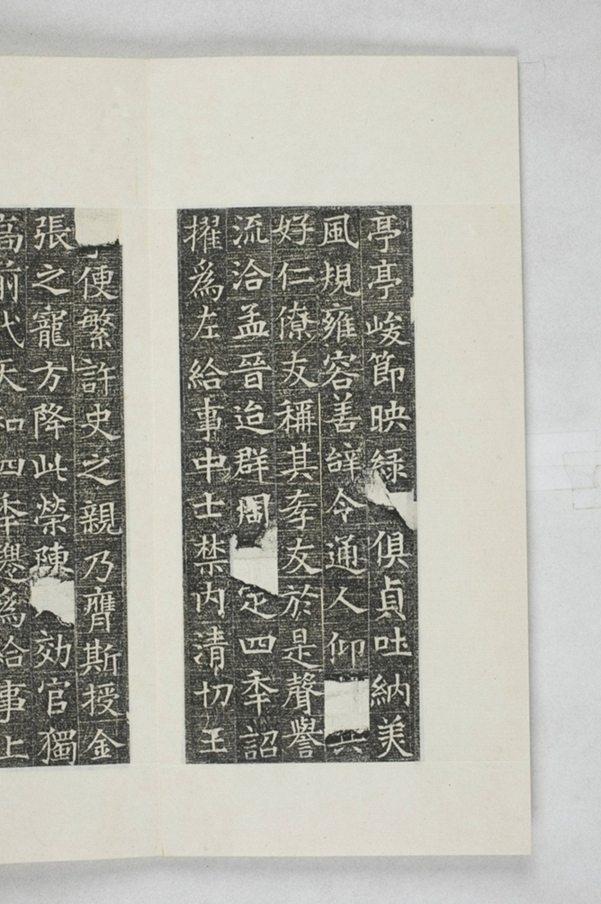 亭亭峻節映綠俱貞吐納美
風規雍容善辭令通人仰
好仁僚友稱其孝友於是聲譽
流洽孟晉迨群閣定四年詔
擢為左給事中士禁內清切王
便繁許史之親乃膺斯授金
張之寵方降此榮陳効官獨
高前代天和四年遷為給事上